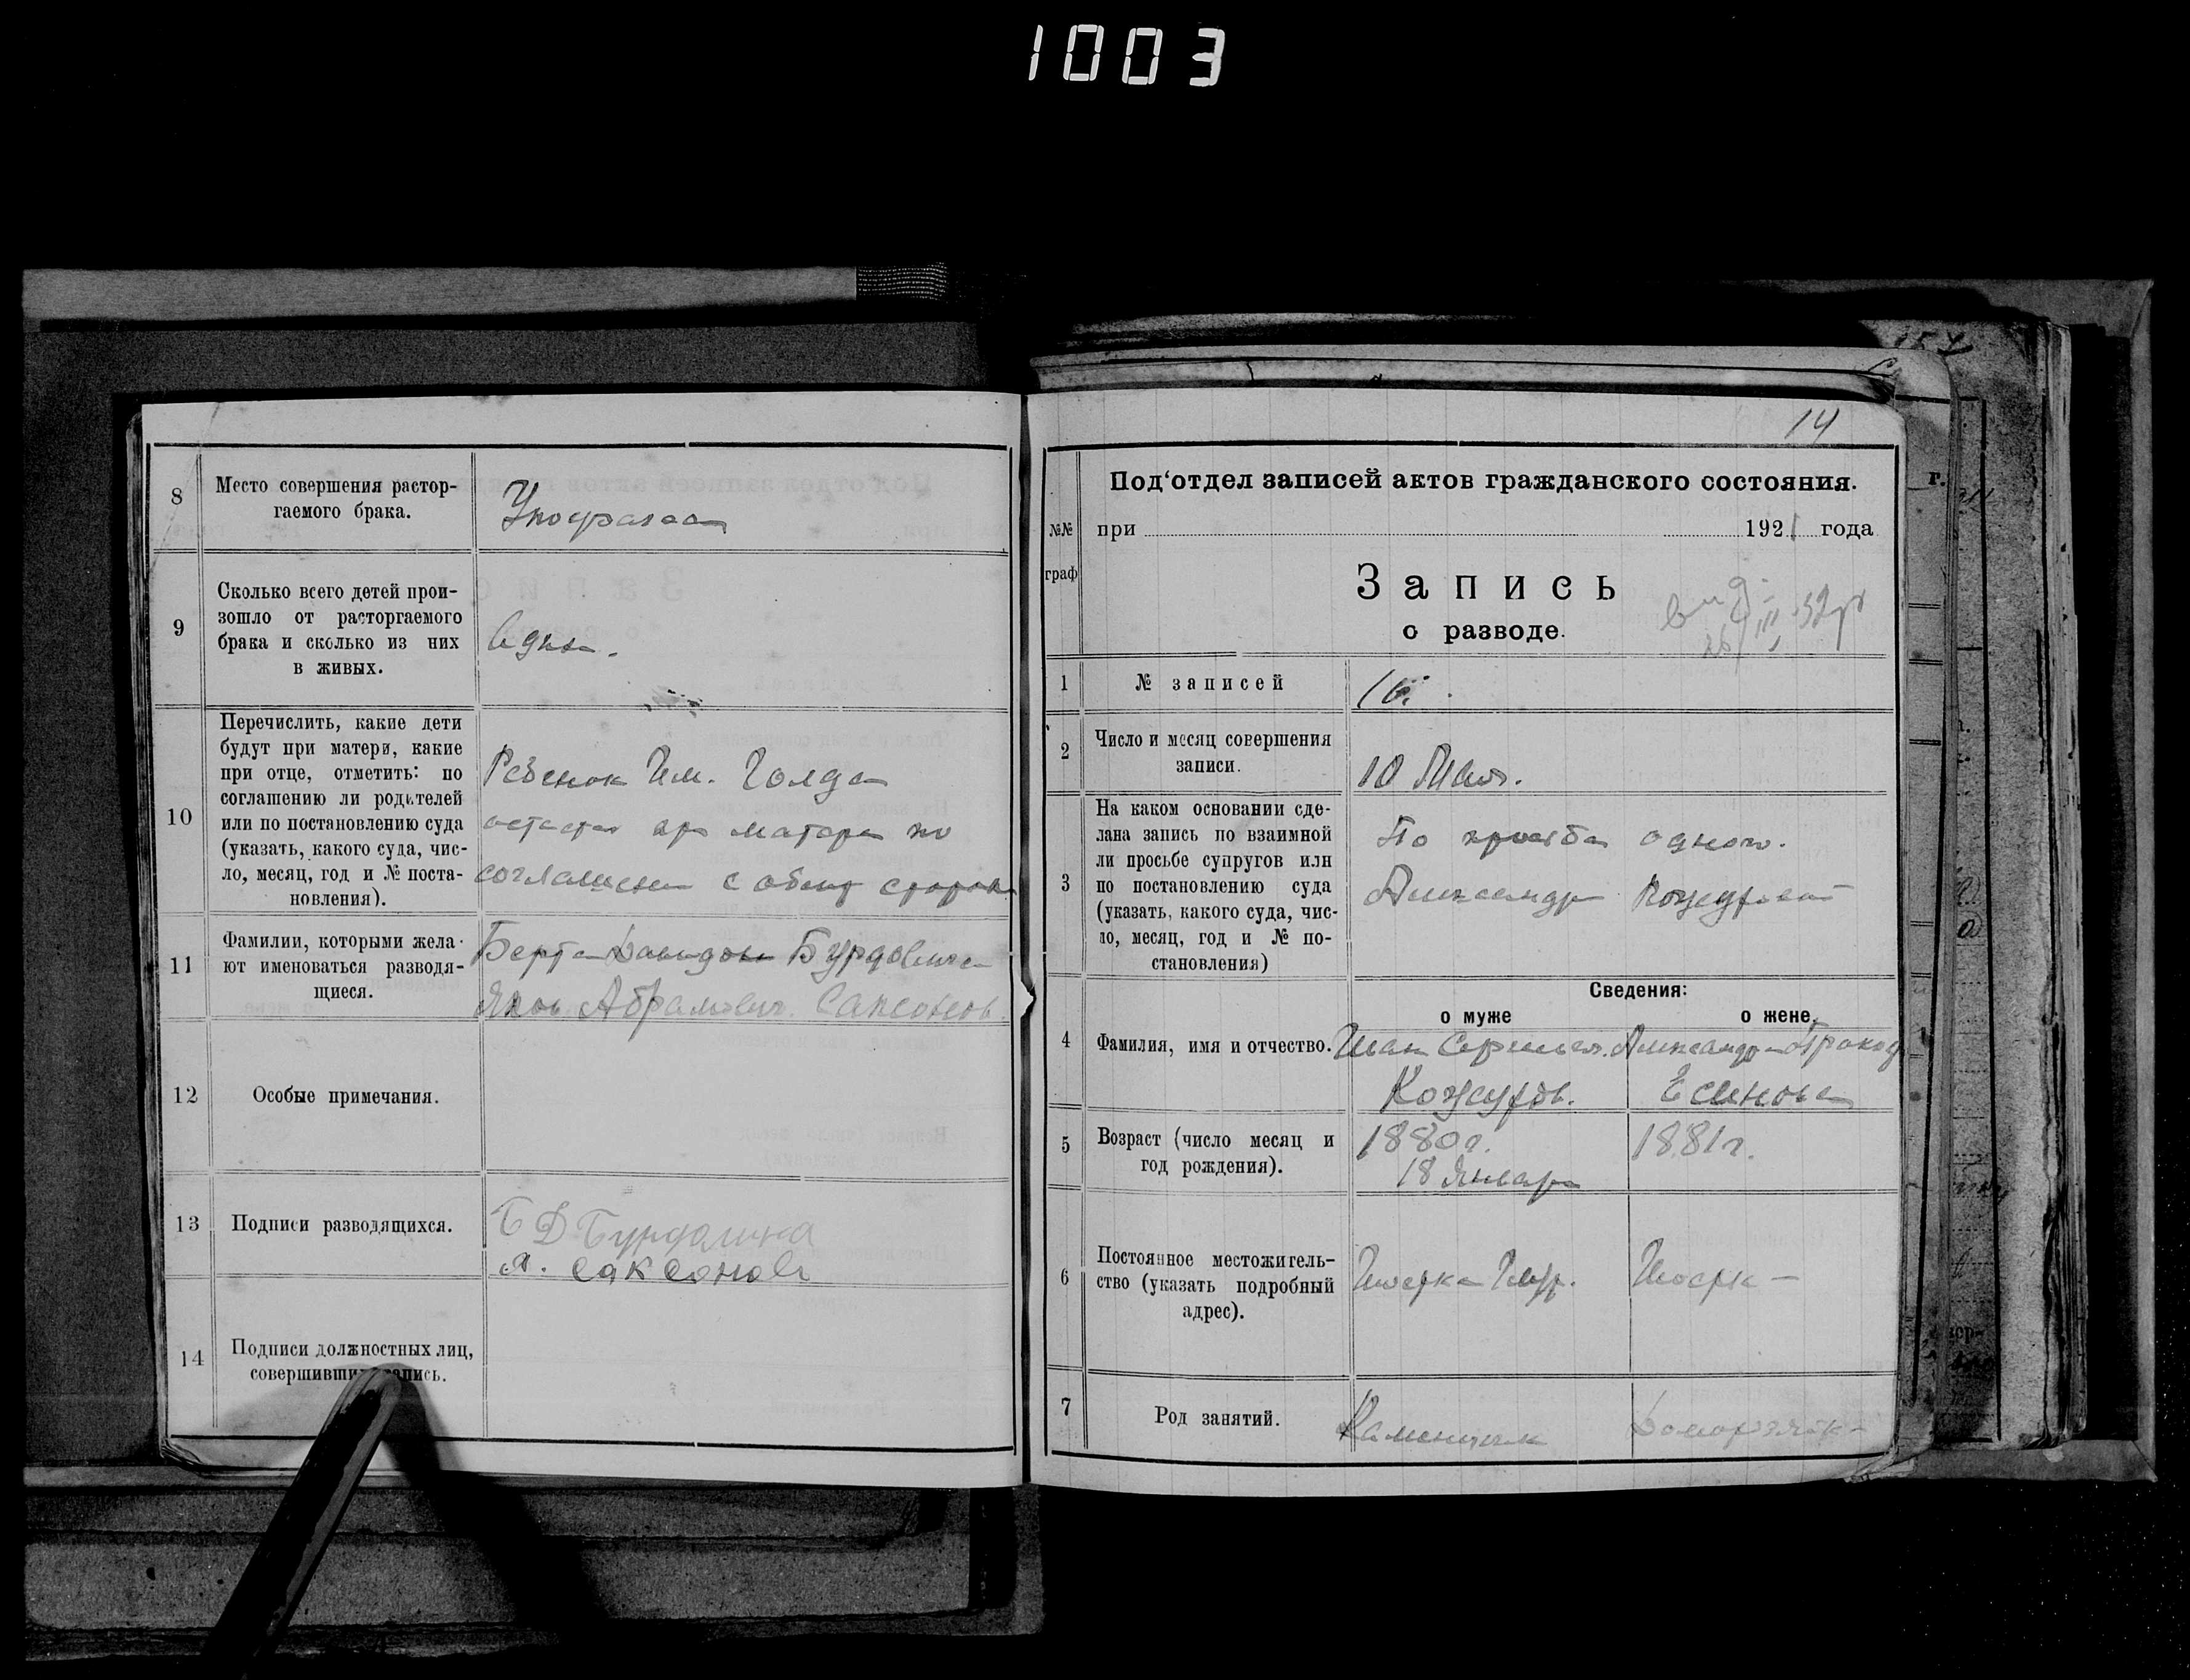 1003
8
Место совершения растор-
гаемого брака.
9
Сколько всего детей прои-
зошло от расторгаемого
брака и сколько из них
в живых.
Одна.
10
Перечислить, какие дети
будут при матери, какие
при отце, отметить: по
соглашению ли родителей
или по постановлению суда
(указать, какого суда, чис-
ло, месяц, год и № поста-
новления).
Ребенок Им. Голда
остается при матери по
соглашению с обеих сторон
11
Фамилии, которыми жела-
ют именоваться разводя-
щиеся.
Берта Давидовна
Яков Абрамович Саксонов.
12
Особые примечания.
13
Подписи разводящихся.
Б Д
Я. Саксонов
14
Подписи должностных лиц,
совершивших запись.
14
№№
граф
Под‘отдел записей актов гражданского состояния.
при 1921 года
Запись
о разводе.
1
№ записей
16.
2
Число и месяц совершения
записи.
10 Мая.
3
На каком основании сде-
лана запись по взаимной
ли просьбе супругов или
по постановлению суда
(указать, какого суда, чис-
ло, месяц, год и № по-
становления)
По просьбе одного.
Александра Кожурова
Сведения:
о муже
о жене.
4
Фамилия, имя и отчество.
Иван Александра
Кожуров. Есинова
5
Возраст (число месяц и
год рождения).
1880г. 1881г.
18 Января
6
Постоянное местожитель-
ство (указать подробный
адрес).
7
Род занятий.
Каменщик
г.